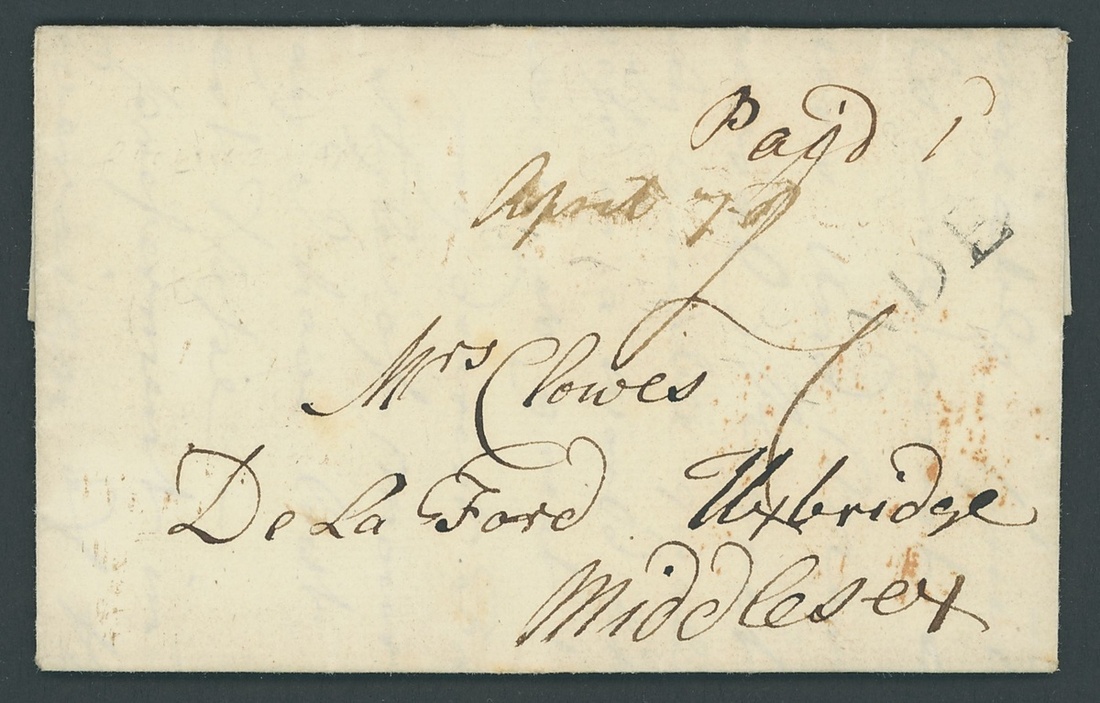 Payd 1
April
Mrs Clowes
De La Ford Uxbridge
Middlesex